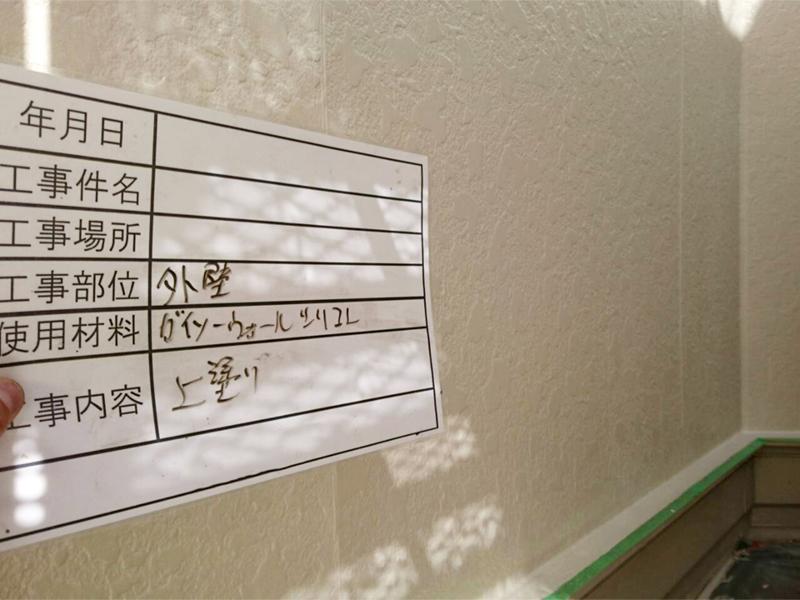 年月日
工事件名
工事場所
工事部位 外壁
使用材料 ダイソーウォールシリコン
工事内容 上塗り